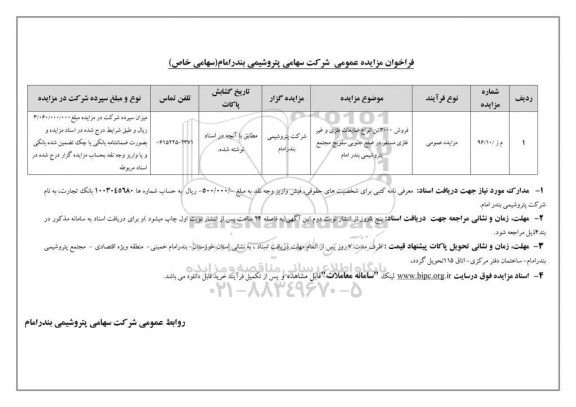 فراخوان مزایده عمومی شرکت سهامی پتروشیمی بندرامام(سهامی خاص)
ردیف
شماره مزایده
نوع فرآیند
موضوع مزایده
مزایده گزار
تاریخ گشایش پاکات
تلفن تماس
نوع و مبلغ سپرده شرکت در مزایده
۱
م ز /۹۶/۱۰۰
مزایده عمومی
فروش ۳۰۰۰تن انواع ضایعات فلزی و غیر
فلزی مستقر در ضلع جنوبی سلویچ مجتمع
پتروشیمی بندر امام
شرکت پتروشیمی
بندرامام
مطابق با آنچه در اسناد
نوشته شده.
میزان سپرده شرکت در مزایده مبلغ ۳/۰۶۰/۰۰۰/۰۰۰
ریال و طبق شرایط درج شده در اسناد مزایده و
بصورت ضمانتنامه بانکی یا چک تضمین شده بانکی
و یا واریز وجه نقد بحساب مزایده گزار درج شده در
اسناد مربوطه
۱- مدارک مورد نیاز جهت دریافت اسناد: معرفی نامه کتبی برای شخصیت های حقوقی، فیش واریز وجه نقد به مبلغ -/۵۰۰/۰۰۰ ریال به حساب شماره ها ۱۰۰۳۰۴۵۶۸۰ بانک تجارت، به نام
شرکت پتروشیمی بندر امام.
۲- مهلت، زمان و نشانی مراجعه جهت دریافت اسناد: پنج روز از انتشار نوبت دوم این آگهی(به فاصله ۲۴ ساعت پس از انتشار نوبت اول چاپ میشود.)و برای دریافت اسناد به سامانه مذکور در
بند۴ذیل مراجعه شود.
۳- مهلت، زمان و نشانی تحویل پاکات پیشنهاد قیمت : ظرف مدت ۷روز پس از اتمام مهلت دریافت اسناد ، به نشانی استان خوزستان- بندرامام خمینی- منطقه ویژه اقتصادی - مجتمع پتروشیمی
بندرامام- ساختمان دفتر مرکزی-اتاق ۱۱۵تحویل گردد.
۴- اسناد مزایده فوق درسایت www.bipc.org.ir لینک "سامانه معاملات"قابل مشاهده و پس از تکمیل فرآیند خرید قابل دانلود می باشد.
پایگاه اطلاع رسانی مناقصه و مزایده
۰۲۱-۸۸۳۴۹۶۷۰-۵
روابط عمومی شرکت سهامی پتروشیمی بندرامام